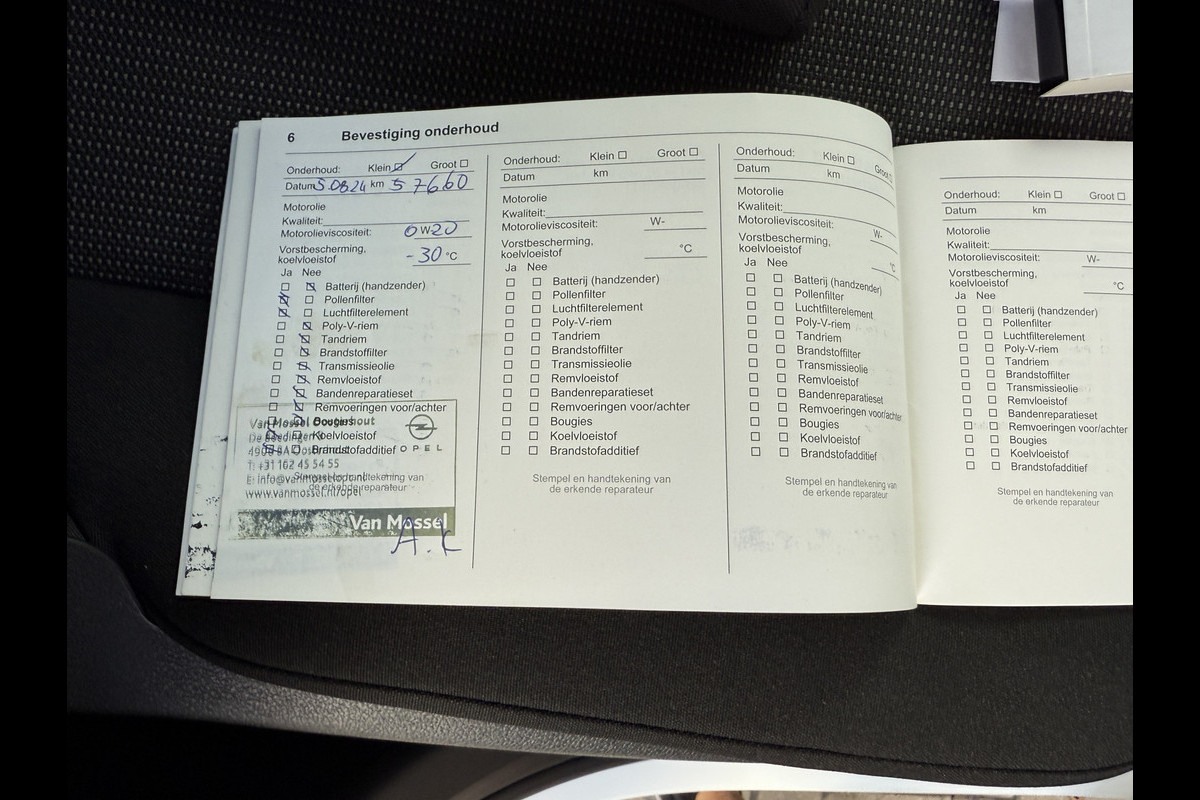 6 Bevestiging onderhoud
Onderhoud: Klein Groot
Datum 5.08.24 km 57660
Motorolie
Kwaliteit:
Motorolieviscositeit: 0 W-20
Vorstbescherming,
koelvloeistof -30 °C
Ja Nee
Batterij (handzender)
Pollenfilter
Luchtfilterelement
Poly-V-riem
Tandriem
Brandstoffilter
Transmissieolie
Remvloeistof
Bandenreparatieset
Remvoeringen voor/achter
Bougies
Koelvloeistof
Brandstofadditief
Stempel en handtekening van
de erkende reparateur
Van Mossel Oosterhout
OPEL
T: +31 162 45 54 55
www.vanmossel.nl/opel
Van Mossel
A.K
Onderhoud: Klein Groot
Datum km
Motorolie
Kwaliteit:
Motorolieviscositeit: W-
Vorstbescherming,
koelvloeistof °C
Ja Nee
Batterij (handzender)
Pollenfilter
Luchtfilterelement
Poly-V-riem
Tandriem
Brandstoffilter
Transmissieolie
Remvloeistof
Bandenreparatieset
Remvoeringen voor/achter
Bougies
Koelvloeistof
Brandstofadditief
Stempel en handtekening van
de erkende reparateur
Onderhoud: Klein Groot
Datum km
Motorolie
Kwaliteit:
Motorolieviscositeit: W-
Vorstbescherming,
koelvloeistof °C
Ja Nee
Batterij (handzender)
Pollenfilter
Luchtfilterelement
Poly-V-riem
Tandriem
Brandstoffilter
Transmissieolie
Remvloeistof
Bandenreparatieset
Remvoeringen voor/achter
Bougies
Koelvloeistof
Brandstofadditief
Stempel en handtekening van
de erkende reparateur
Onderhoud: Klein Groot
Datum km
Motorolie
Kwaliteit:
Motorolieviscositeit: W-
Vorstbescherming,
koelvloeistof °C
Ja Nee
Batterij (handzender)
Pollenfilter
Luchtfilterelement
Poly-V-riem
Tandriem
Brandstoffilter
Transmissieolie
Remvloeistof
Bandenreparatieset
Remvoeringen voor/achter
Bougies
Koelvloeistof
Brandstofadditief
Stempel en handtekening van
de erkende reparateur